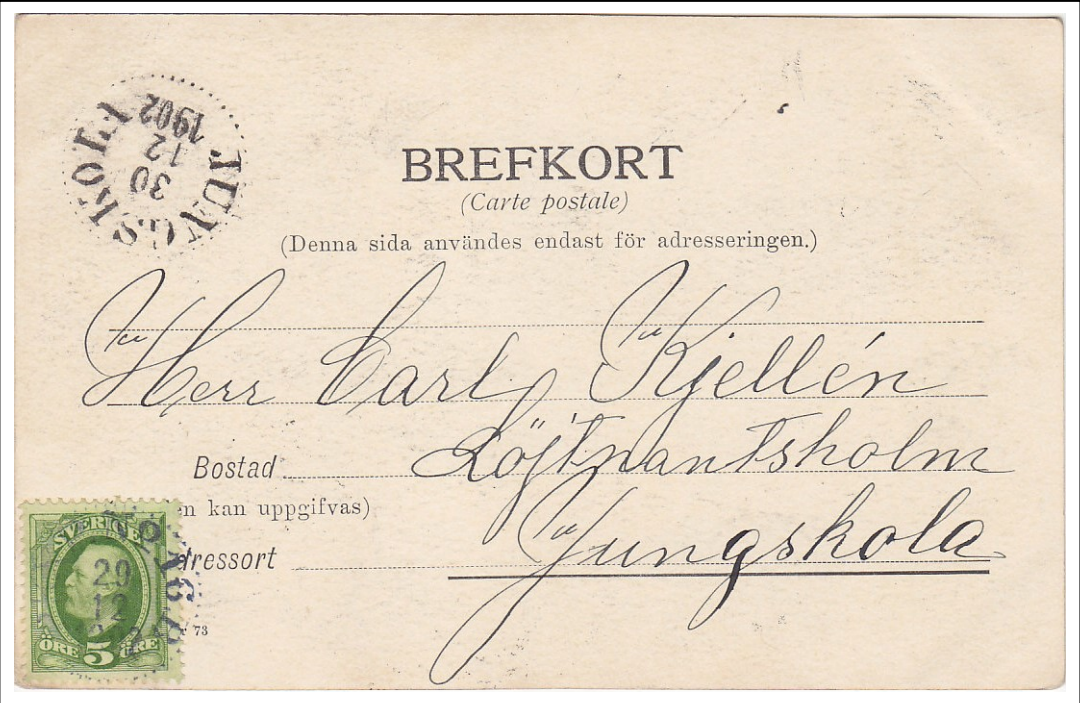 JUNGSKOLA
30
12
1902
BREFKORT
(Carte postale)
(Denna sida användes endast för adresseringen.)
Herr Carl Kjellén
Bostad Löjtnantsholm
en kan uppgifvas)
dressort Jungskola
73
SVERIGE
29
12
ÖRE 5 ÖRE